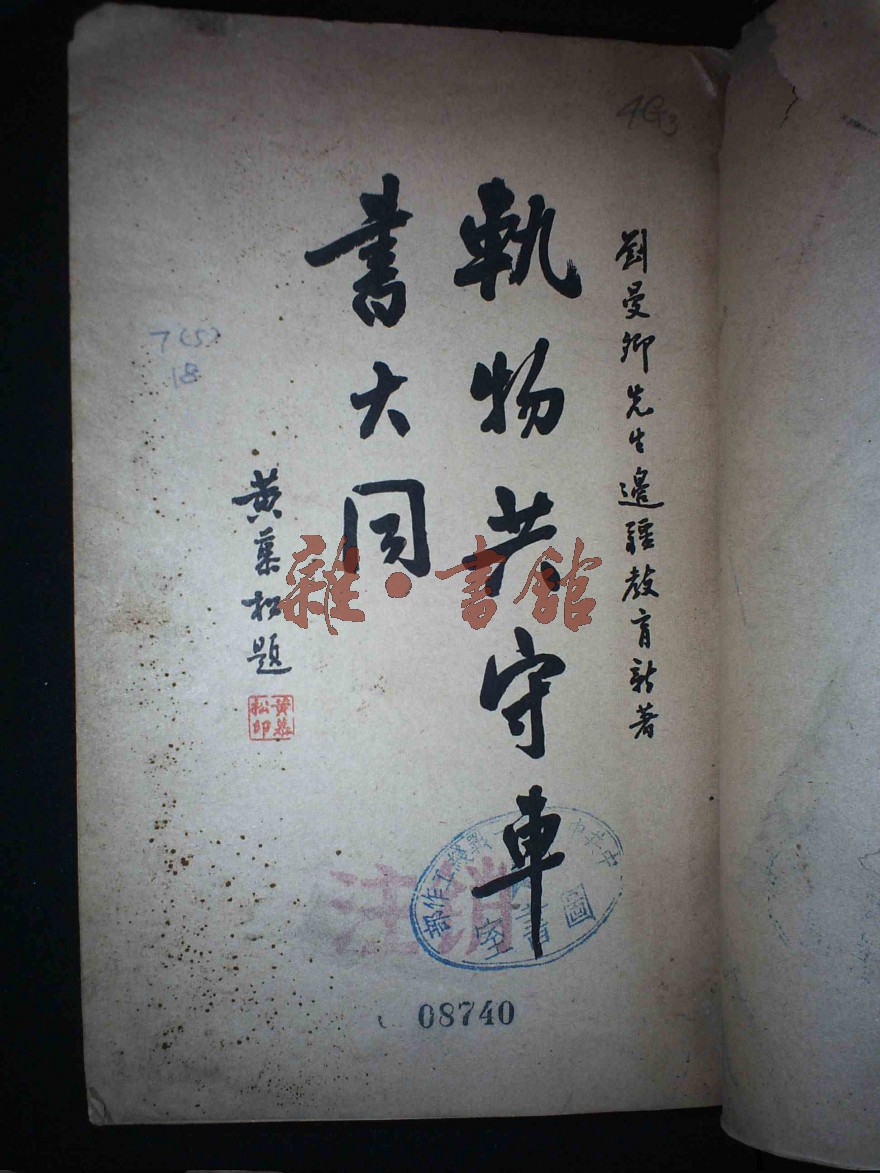 劉曼卿先生邊疆教育新著
軌物共守車
書大同
黃慕松題
黃慕
松印
4G3
7(5)
18
雜·書館
注銷
戰綫工作部
圖書室
08740